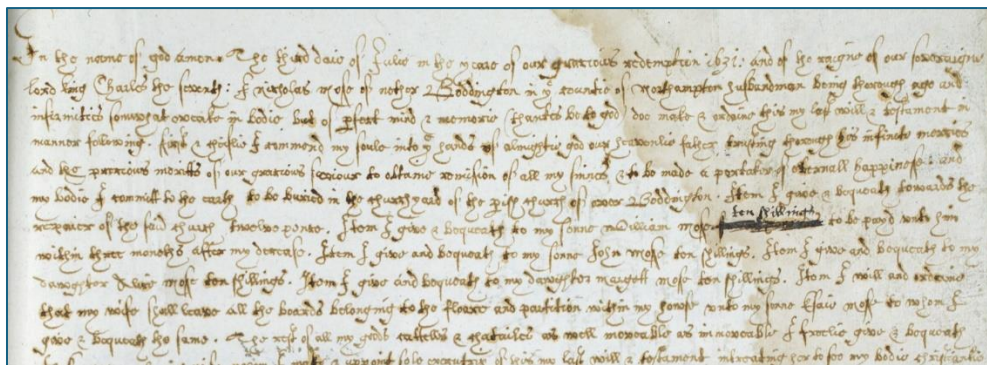 In the name of god amen. The third daie of Julie in the yeare of our gratious redemption 1631: and of the raigne of our soveraigne
lord king Charles the seventh: I Nicholas Mose of nether Boddington in yͤ countie of Northampton husbandman being through age and
infirmities somwhat in bodie but of perfect mind & memorie thankes be to god doe make & ordaine this my last will & testament in
manner following. first & cheiflie I commend my soule into yͤ hands of almightie god our heavenlie father trusting through his infinite mercies
and the pretious meritts of our gratious saviour to obtaine remission of all my sinnes & to be made a partaker of eternall happinesse: and
my bodie I committ to the earth to be buried in the churchyard of the pish church of over Boddington. Item I give & bequeath towards the
repaier of the said church twelve pence. Item I give & bequeath to my sonne William Mose ten shillings to be payd unto him
within three moneths after my decease. Item I give and bequeath to my sonne John Mose ten shillings. Item I give and bequeath to my
dawghter Mose ten shillings. Item I give and bequeath to my dawghter margett Mose ten shillings. Item I will and ordaine
that my wife shall leave all the boards belonging to the floore and partition within my howse unto my sonne Esaie Mose to whom I
give & bequeath the same. The rest of all my goods cattells & chattells as well moveable as immoveable I freelie give & bequeath
make & appoint sole executrix of this my last will & testament intreating her to see my bodie christianlie